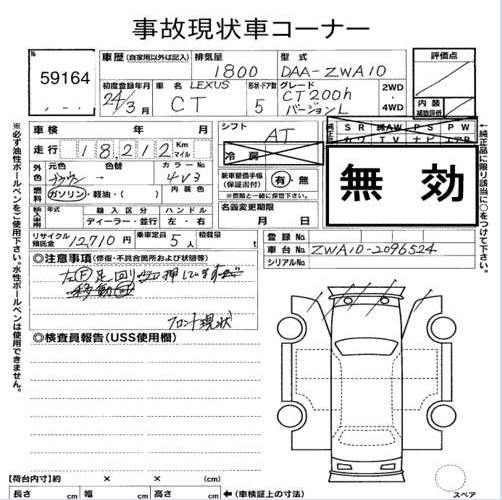 事故現状車コーナー
59164
車歴 (自家用以外は記入)
排気量
1800
型式
DAA-ZWA10
評価点
初度登録年月
24/3月
車名
LEXUS
CT
形状・ドア数
5
グレード
CT200h
バージョンL
2WD・4WD
内装補助評価
車検 年 月
走行 18,212 Km マイル
シフト
AT
冷房
純正 SR 純AW PS PW
カワ TV ナビ エアB
無効
外色
元色
色替
カラーNo.
4V3
燃料
ガソリン・軽油・( )
内装色
新車整備手帳(保証書付) 有・無
※記録簿と一緒に保管して下さい。
輸入車用
年式
輸入区分
ディーラー・並行
ハンドル
左・右
名義変更期限
月 日
リサイクル預託金 12,710円
乗車定員 5人
積載量 t
登録No.
車台No. ZWA10-2096524
シリアルNo.
◎注意事項(修復・不具合箇所および状態等)
フロント現状
◎検査員報告(USS使用欄)
【荷台内寸】約 × × (cm)
長さ cm 幅 cm 高さ cm ←(車検証上の寸法)
スペア
※必ず油性ボールペンをご使用下さい。水性ボールペンは使用できません。
←純正品に限り該当に○をつけて下さい。